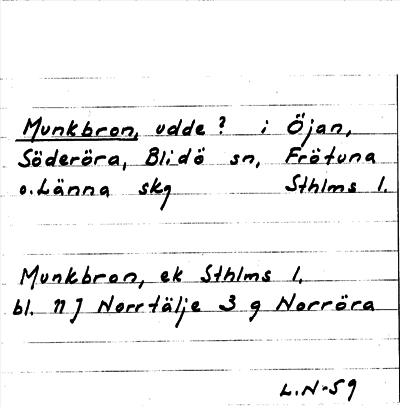 Munkbron, udde? i Öjan,
Söderöra, Blidö sn, Frötuna
o. Länna skg Sthlms l.
Munkbron, ek Sthlms l.
bl. 11 J Norrtälje 3 g Norröra
L.N-59